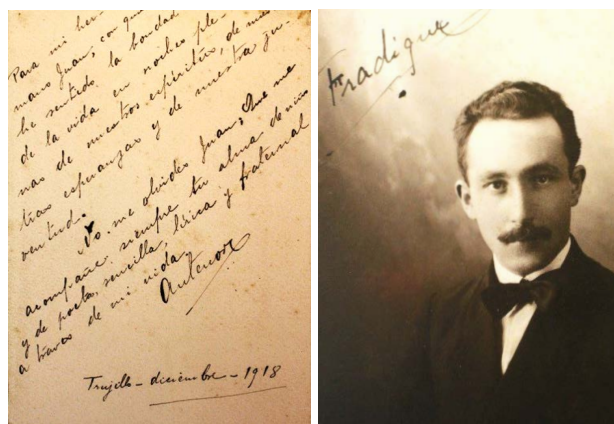 Para mi her-
mano Juan, con quien
he sentido la bondad
de la vida en noches ple-
nas de nuestros espíritus, de nues-
tras esperanzas y de nuestra ju-
ventud.
No me olvides Juan; Que me
acompañe siempre tu alma de niño
y de poeta, sencilla, lírica y fraternal
a través de mi vida.
Antenor
Trujillo - diciembre - 1918
Fradique